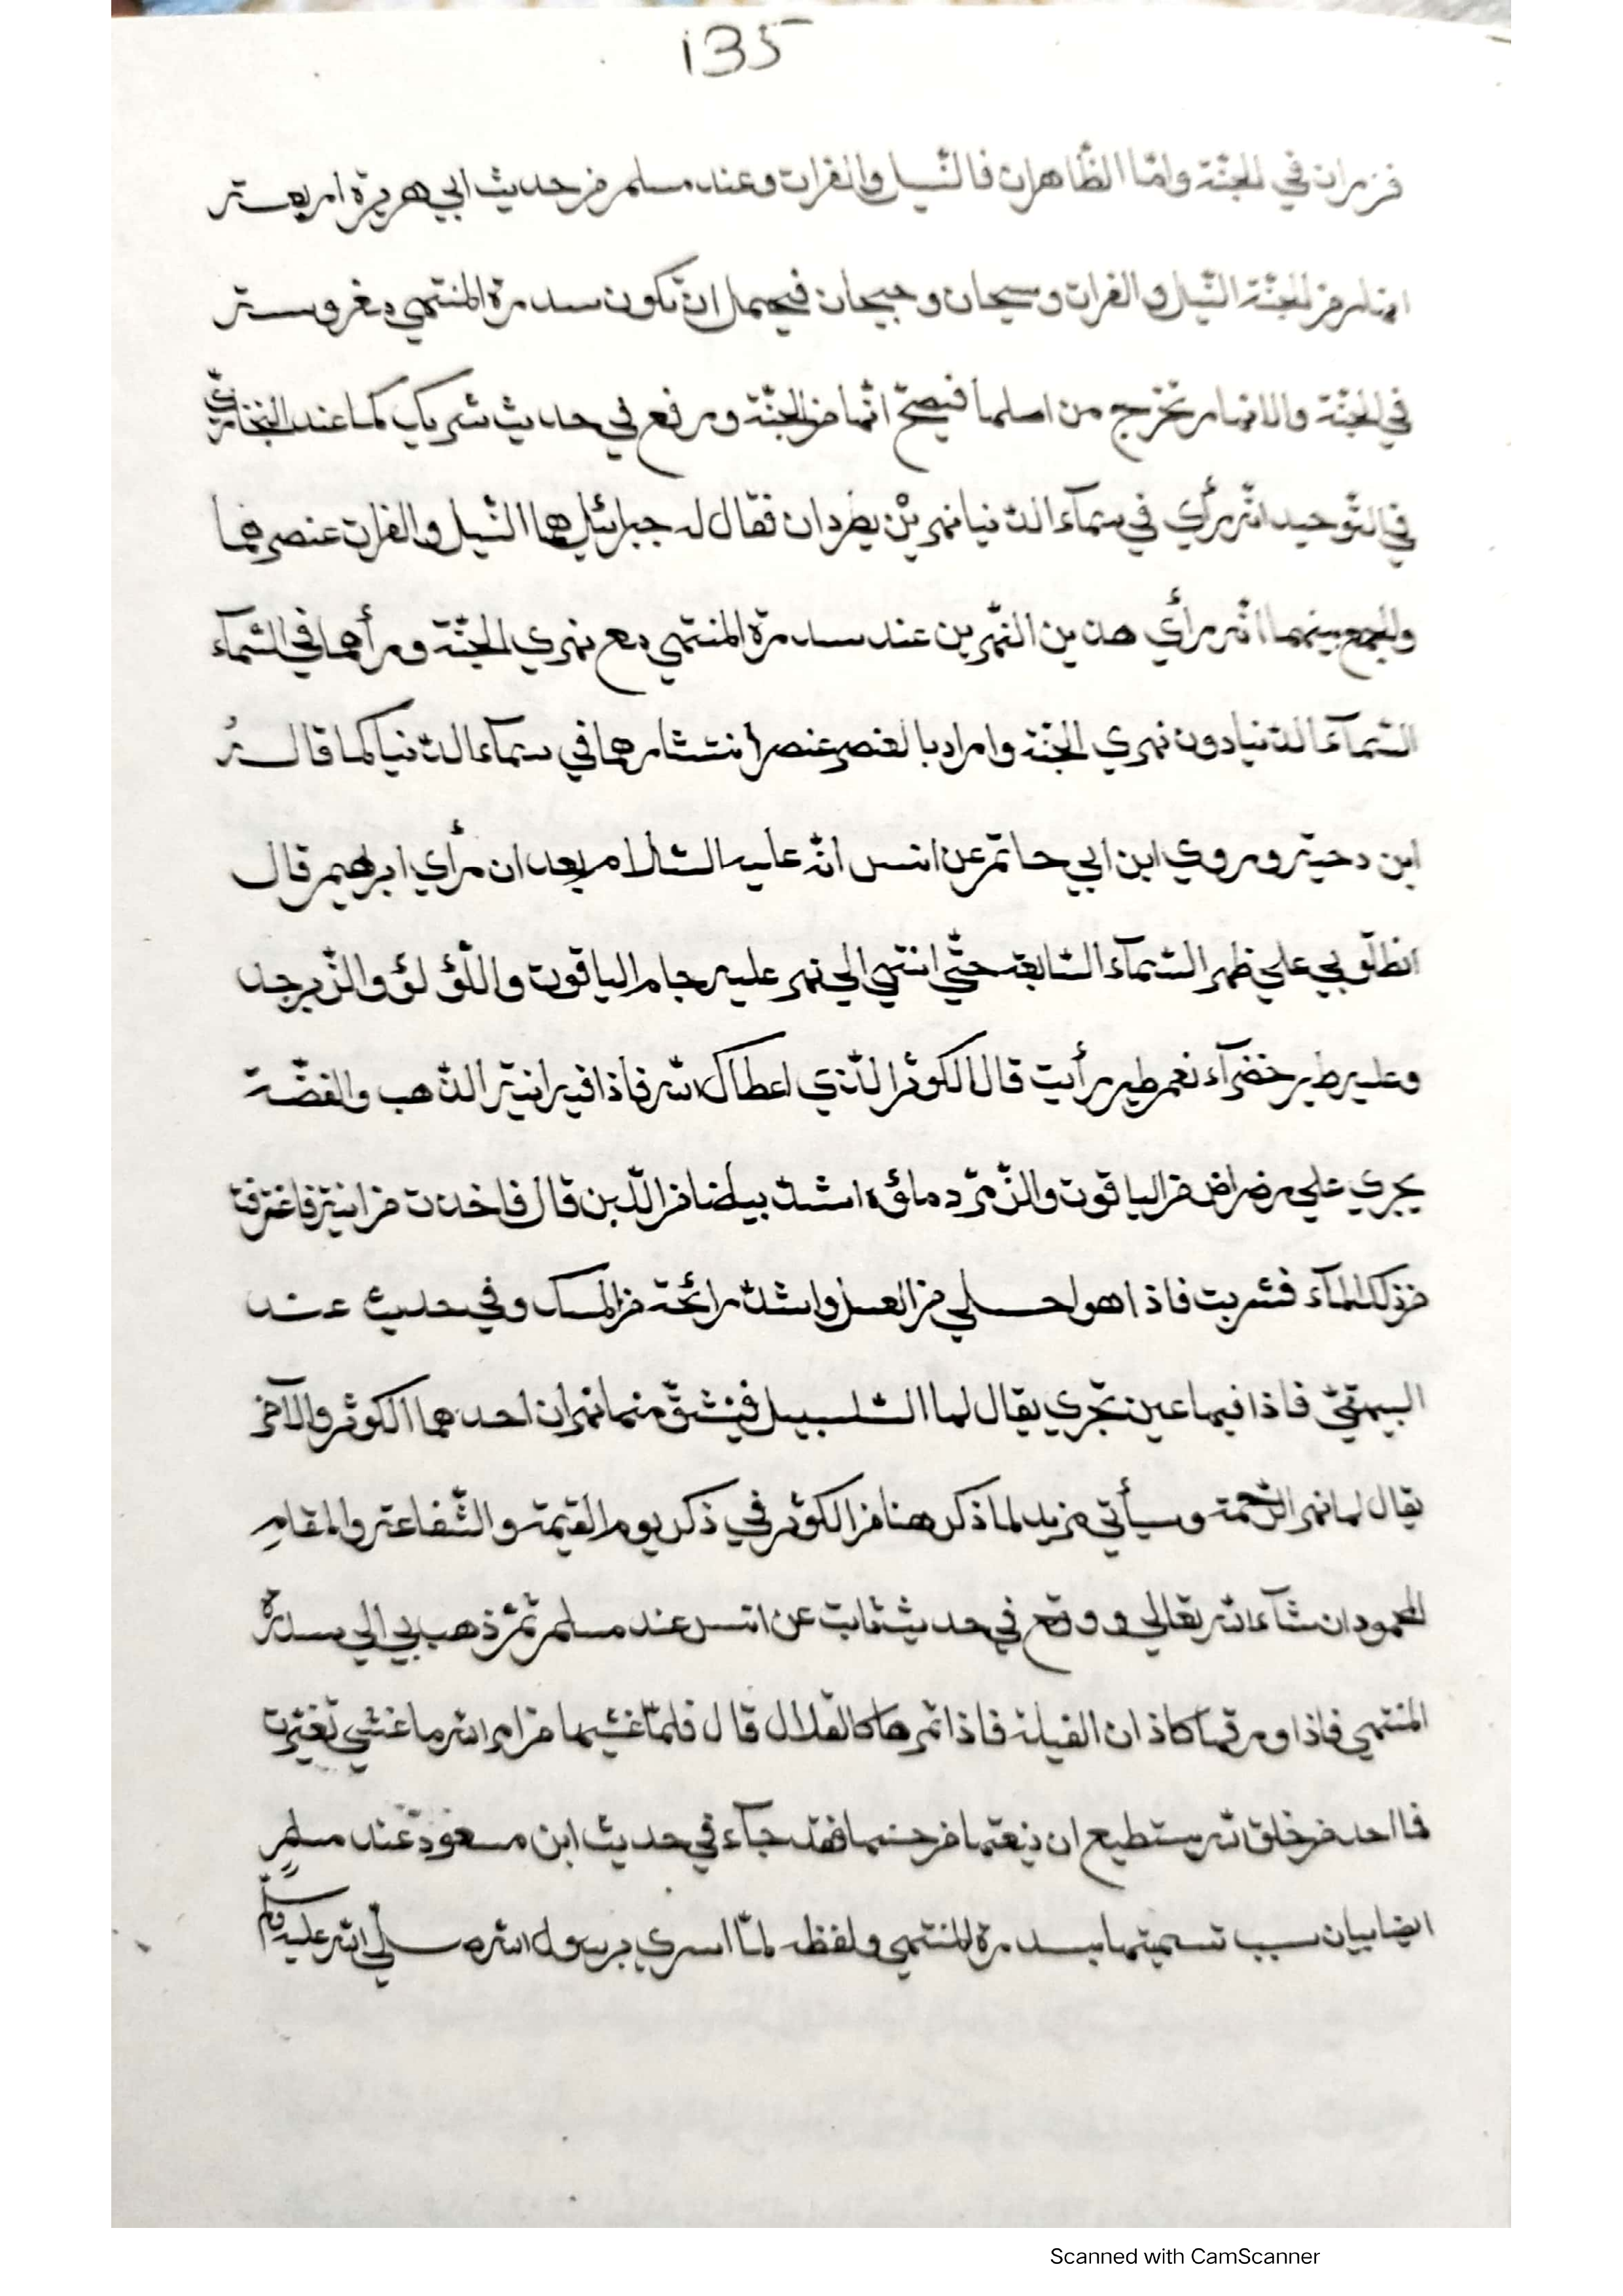 135
فنهران في الجنّة وامّا الظّاهران فالنّيل والفرات وعند مسلم من حديث ابي هريرة اربعة
انهار من الجنّة النّيل والفرات وسيحان وجيحان فيحمل ان تكون سدرة المنتهي مغروسة
في الجنّة والانهار تخرج من اصلها فيصحّ انّها من الجنّة ووقع في حديث شريك كما عند البخاريّ
في التّوحيد انّه رأي في سمآء الدّنيا نهرين يطردان فقال له جبرائيل هما النّيل والفرات عنصرهما
والجمع بينهما انّه رأي هذين النّهرين عند سدرة المنتهي مع نهري الجنّة ورأهما في السّمآء
السّمآء الدّنيا دون نهري الجنّة واراد بالعنصر عنصر انتشارهما في سمآء الدّنيا كما قاله
ابن دحية وروي ابن ابي حاتم عن انس انّه عليه السّلام بعد ان رأي ابرهيم قال
انطلق بي علي ظهر السّمآء السّابعة حتّي انتهي الي نهر عليه جام الياقوت واللّؤلؤ والزّبرجد
وعليه طير خضرآء نعم طير رأيت قال الكوثر الّذي اعطاك الله فاذا فيه انية الذّهب والفضّة
يجري علي رضراض من الياقوت والزّمرّد ماؤه اشدّ بياضا من اللّبن قال فاخذت من انيته فاغترفت
من ذلك المآء فشربت فاذا هو احلي من العسل واشدّ رائحة من المسك وفي حديث عند
البيهقيّ فاذا فيها عين تجري يقال لها السّلسبيل فينشقّ منها نهران احدهما الكوثر والآخر
يقال لها نهر الرّحمة وسيأتي مزيد لما ذكر هنا من الكوثر في ذكر يوم القيمة والشّفاعة والمقام
المحمود ان شآء الله تعالي ووقع في حديث ثابت عن انس عند مسلم ثمّ ذهب بي الي سدرة
المنتهي فاذا ورقها كاذان الفيلة فاذا ثمرها كالقلال قال فلمّا غشيها من امر الله ما غشي تغيّرت
فما احد من خلق الله يستطيع ان ينعتها من حسنها فقد جآء في حديث ابن مسعود عند مسلم
ايضا بيان سبب تسميتها بسدرة المنتهي ولفظه لمّا اسري برسول الله صلّي الله عليه وسلم
Scanned with CamScanner